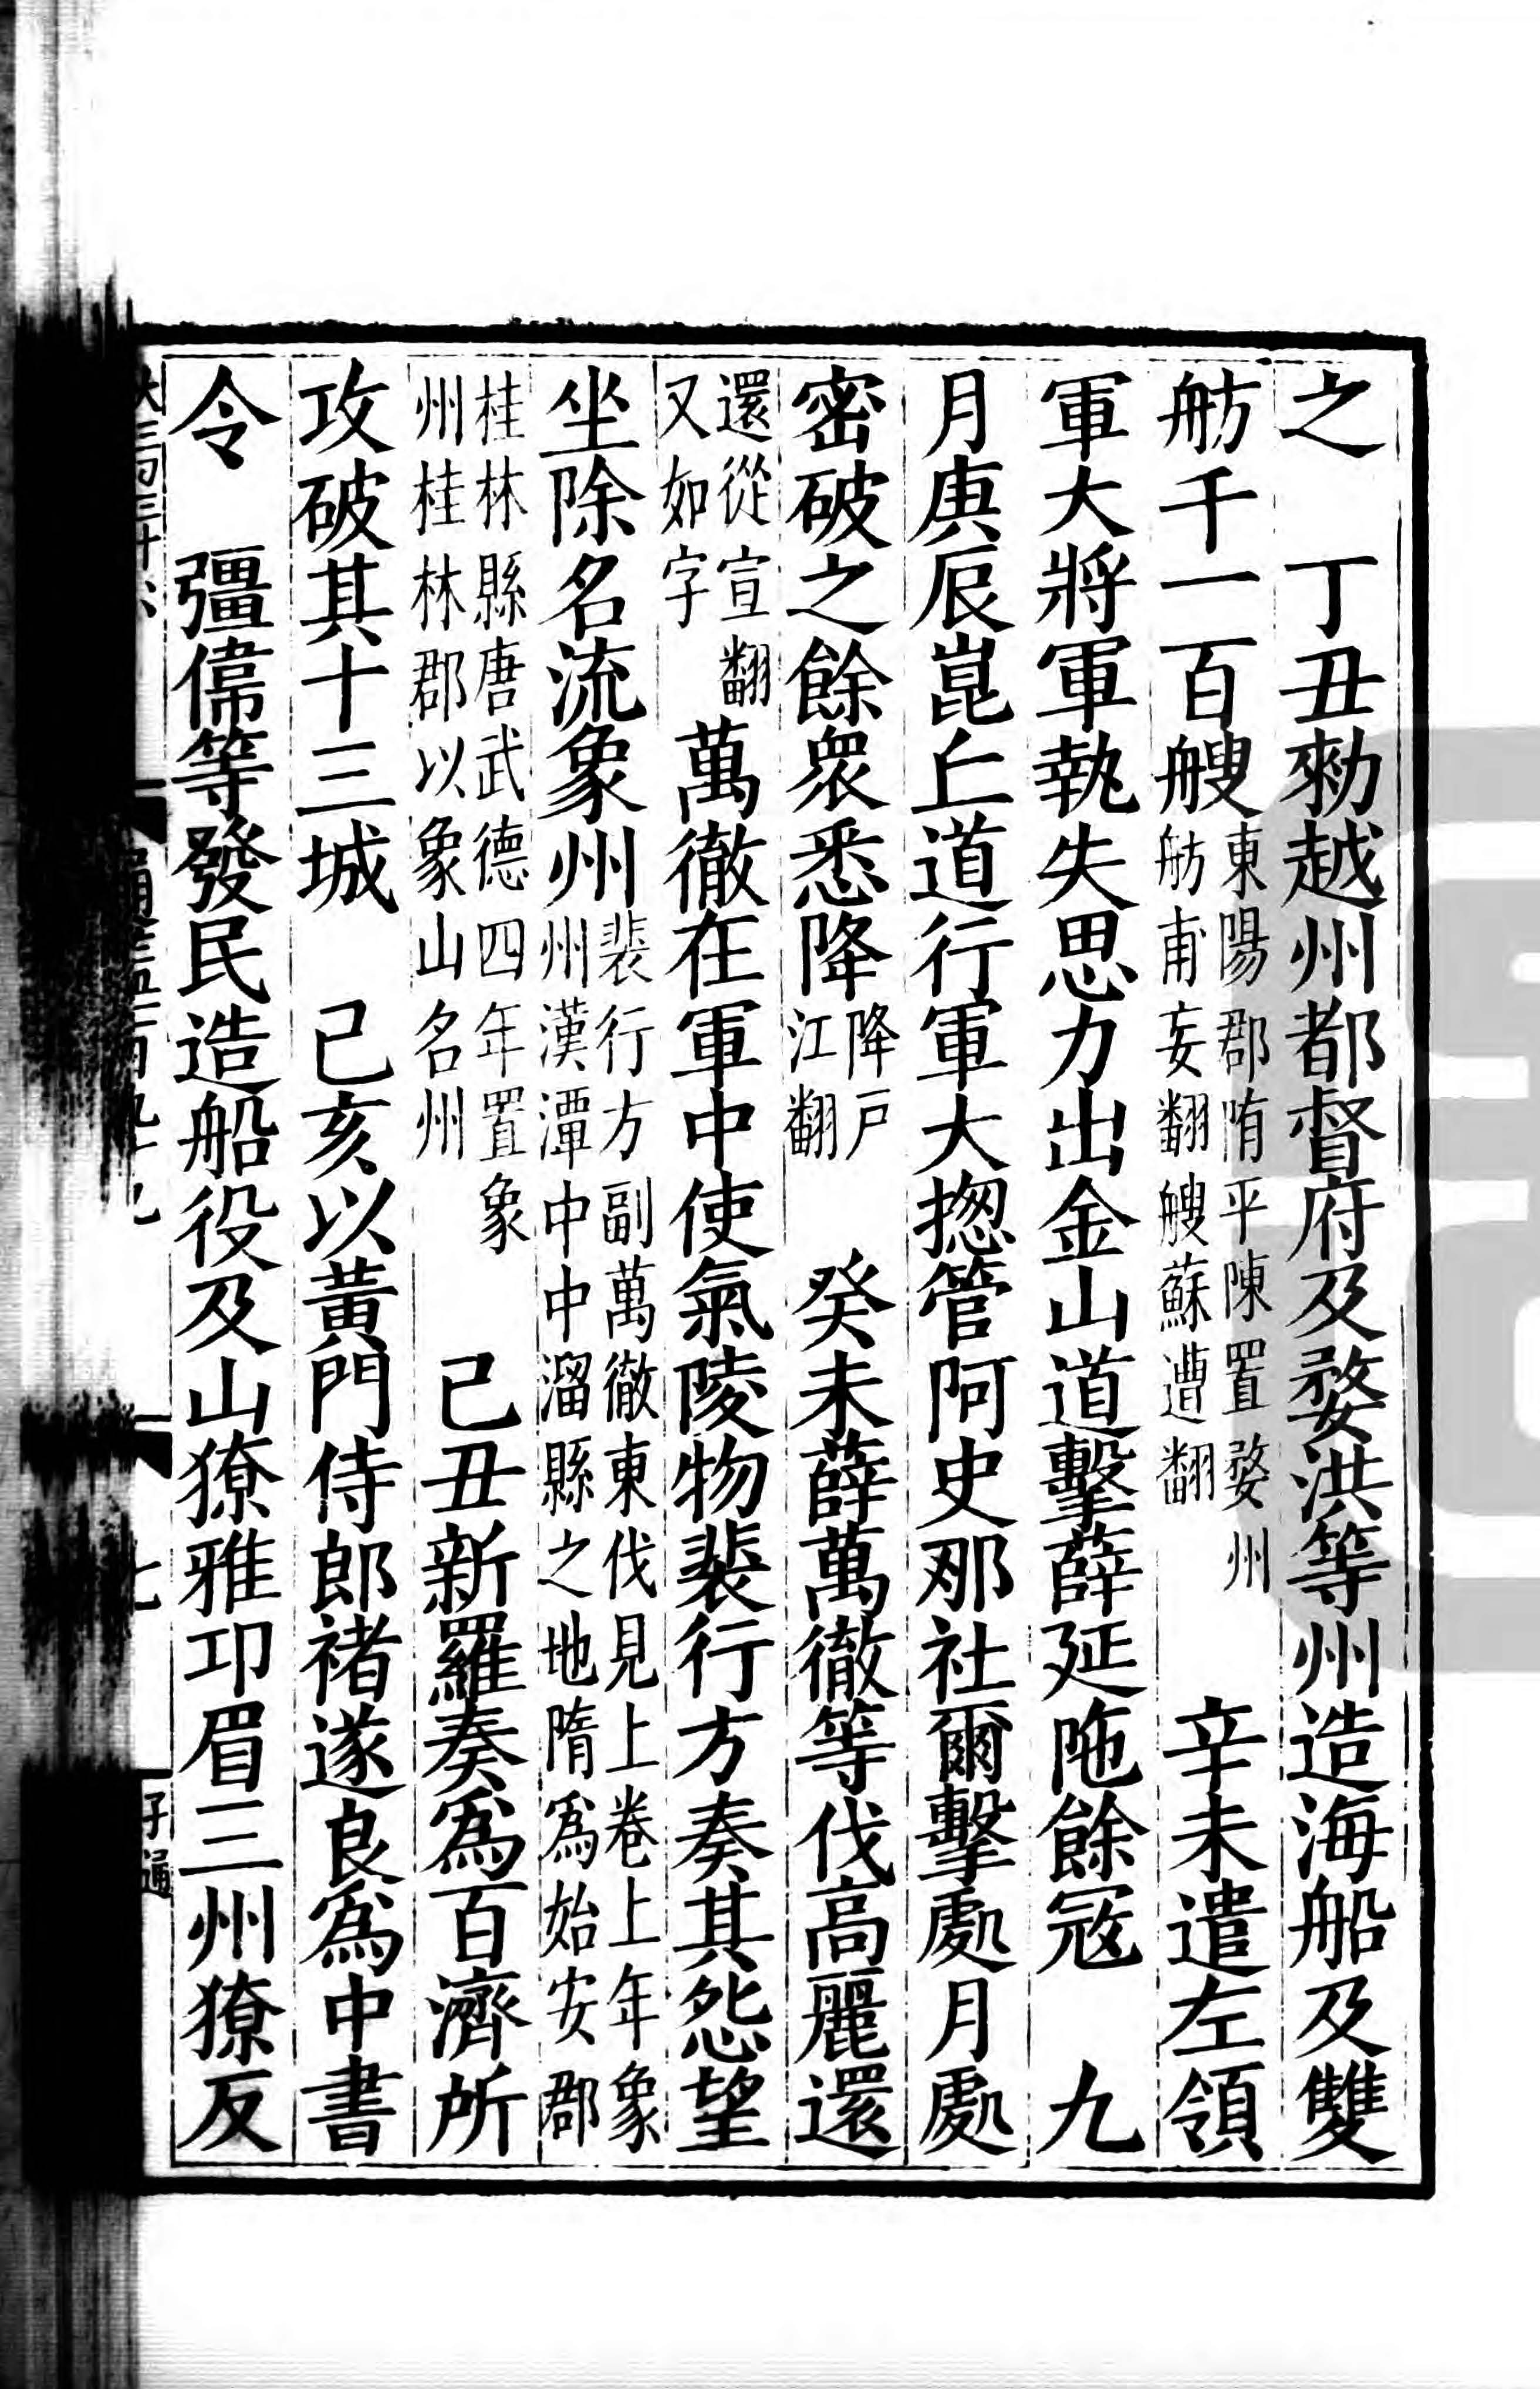 之　丁丑勑越州都督府及婺洪等州造海船及雙
舫千一百艘東陽郡陏平陳置婺州舫甫妄翻艘蘇遭翻　辛未遣左領
軍大將軍執失思力出金山道擊薛延陁餘寇　九
月庚辰崑丘道行軍大揔管阿史那社爾擊處月處
密破之餘衆悉降降戶江翻　癸未薛萬徹等伐高麗還
還從宣翻又如字　萬徹在軍中使氣陵物裴行方奏其怨望
坐除名流象州裴行方副萬徹東伐見上卷上年象州漢潭中中溜縣之地隋爲始安郡
桂林縣唐武德四年置象州桂林郡以象山名州　己丑新羅奏爲百濟所
攻破其十三城　己亥以黃門侍郎褚遂良爲中書
令　彊偉等發民造船役及山獠雅卭眉三州獠反